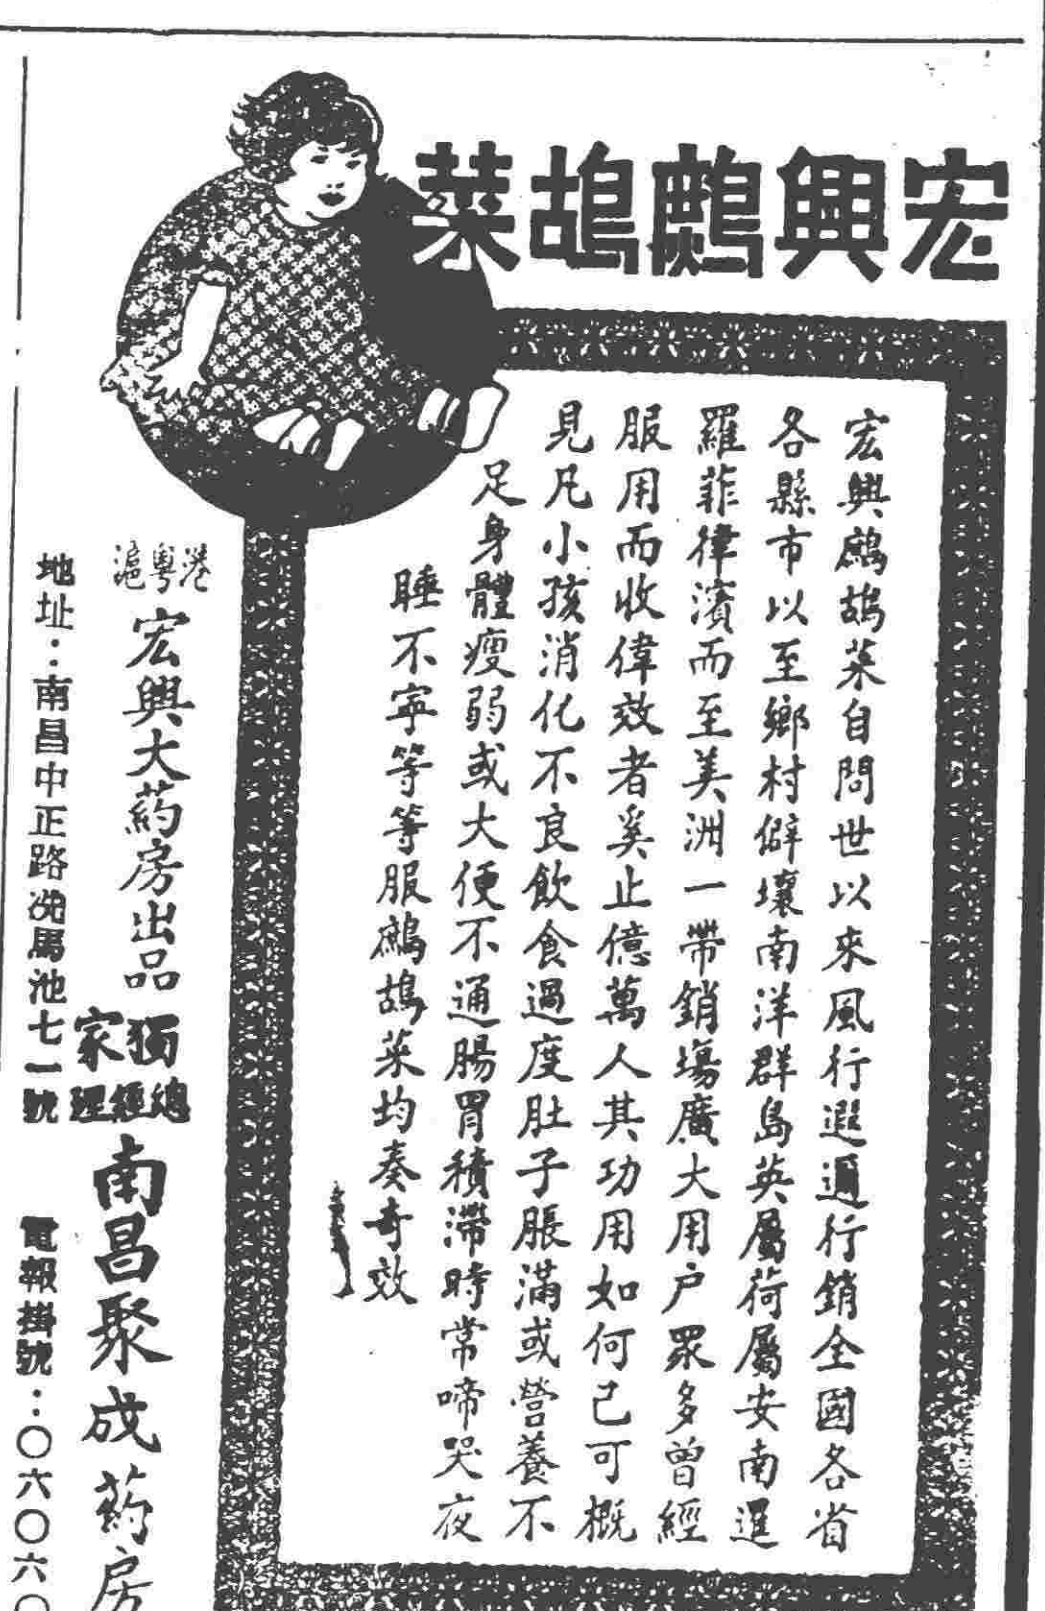 宏興鷓鴣菜
宏興鷓鴣菜自問世以來風行遐邇行銷全國各省
各縣市以至鄉村僻壤南洋群島英屬荷屬安南暹
羅菲律濱而至美洲一帶銷塲廣大用户眾多曾經
服用而收偉效者奚止億萬人其功用如何己可概
見凡小孩消化不良飲食過度肚子脹滿或營養不
足身體瘦弱或大便不通腸胃積滯時常啼哭夜
睡不寧等等服鷓鴣菜均奏奇效
港粵滬
宏興大葯房出品
獨家
總經理
南昌聚成葯房
地址：南昌中正路洗馬池七一號
電報掛號：〇六〇六〇